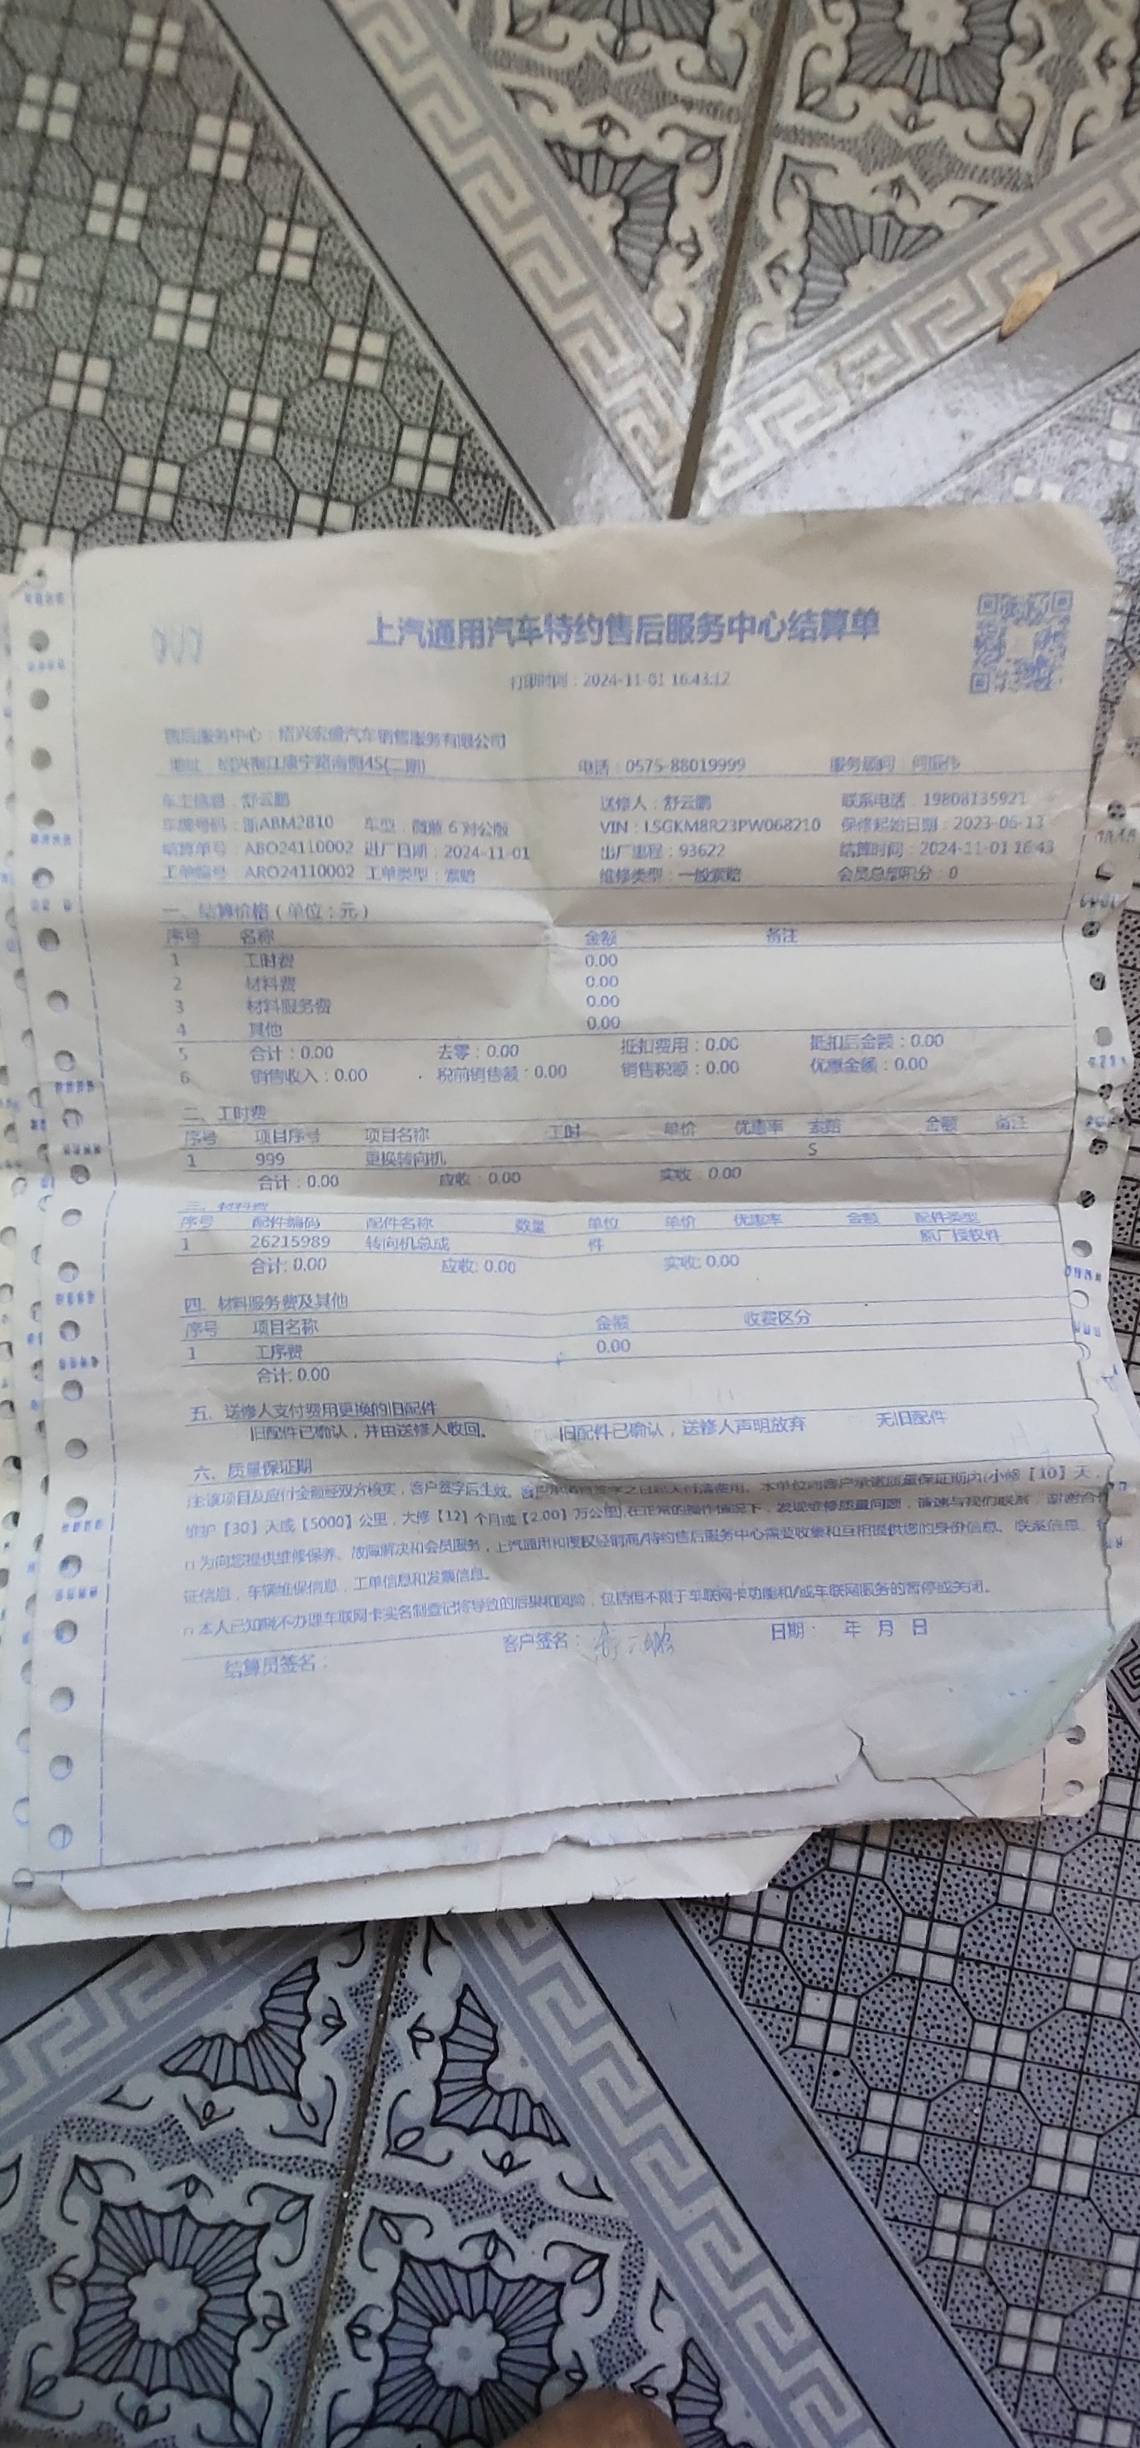 上汽通用汽车特约售后服务中心结算单
打印时间：2024-11-01 16:43:12
售后服务中心：绍兴宏盛汽车销售服务有限公司
地址 康宁路南侧4S(二期) 电话：0575-88019999 服务顾问：
车主信息：舒云鹏 送修人：舒云鹏 联系电话：19808135921
车牌号码：浙ABM2810 车型：微蓝 6 对公版 VIN：LSGKM8R23PW068210 保修起始日期：2023-06-13
结算单号：ABO24110002 进厂日期：2024-11-01 出厂里程：93622 结算时间：2024-11-01 16:43
工单编号 ARO24110002 工单类型：索赔 维修类型：一般索赔 会员总部积分：0
一、结算价格（单位：元）
序号 名称 金额 备注
1 工时费 0.00
2 材料费 0.00
3 材料服务费 0.00
4 其他 0.00
5 合计：0.00 去零：0.00 抵扣费用：0.00 抵扣后金额：0.00
6 销售收入：0.00 税前销售额：0.00 销售税额：0.00 优惠金额：0.00
二、工时费
序号 项目序号 项目名称 工时 单价 优惠率 索赔 金额 备注
1 999 更换转向机 S
合计：0.00 应收：0.00 实收：0.00
三、材料费
序号 配件编码 配件名称 数量 单位 单价 优惠率 金额 配件类型
1 26215989 转向机总成 件 原厂授权件
合计: 0.00 应收: 0.00 实收: 0.00
四、材料服务费及其他
序号 项目名称 金额 收费区分
1 工序费 0.00
合计: 0.00
五、送修人支付费用更换的旧配件
旧配件已确认，并由送修人收回。 旧配件已确认，送修人声明放弃 无旧配件
六、质量保证期
注:该项目及应付金额经双方核实，客户签字后生效。 本单位向客户承诺质量保证期内(小修【10】天，
维护【30】天或【5000】公里，大修【12】个月或【2.00】万公里),在正常的操作情况下，发现维修质量问题，请速与我们联系，谢谢合作
n 为向您提供维修保养、故障解决和会员服务，上汽通用和授权经销商/特约售后服务中心需要收集和互相提供您的身份信息、联系信息、
证信息，车辆维保信息，工单信息和发票信息。
n 本人已知晓不办理车联网卡实名制登记将导致的后果和风险，包括但不限于车联网卡功能和/或车联网服务的暂停或关闭。
结算员签名： 客户签名：舒云鹏 日期： 年 月 日